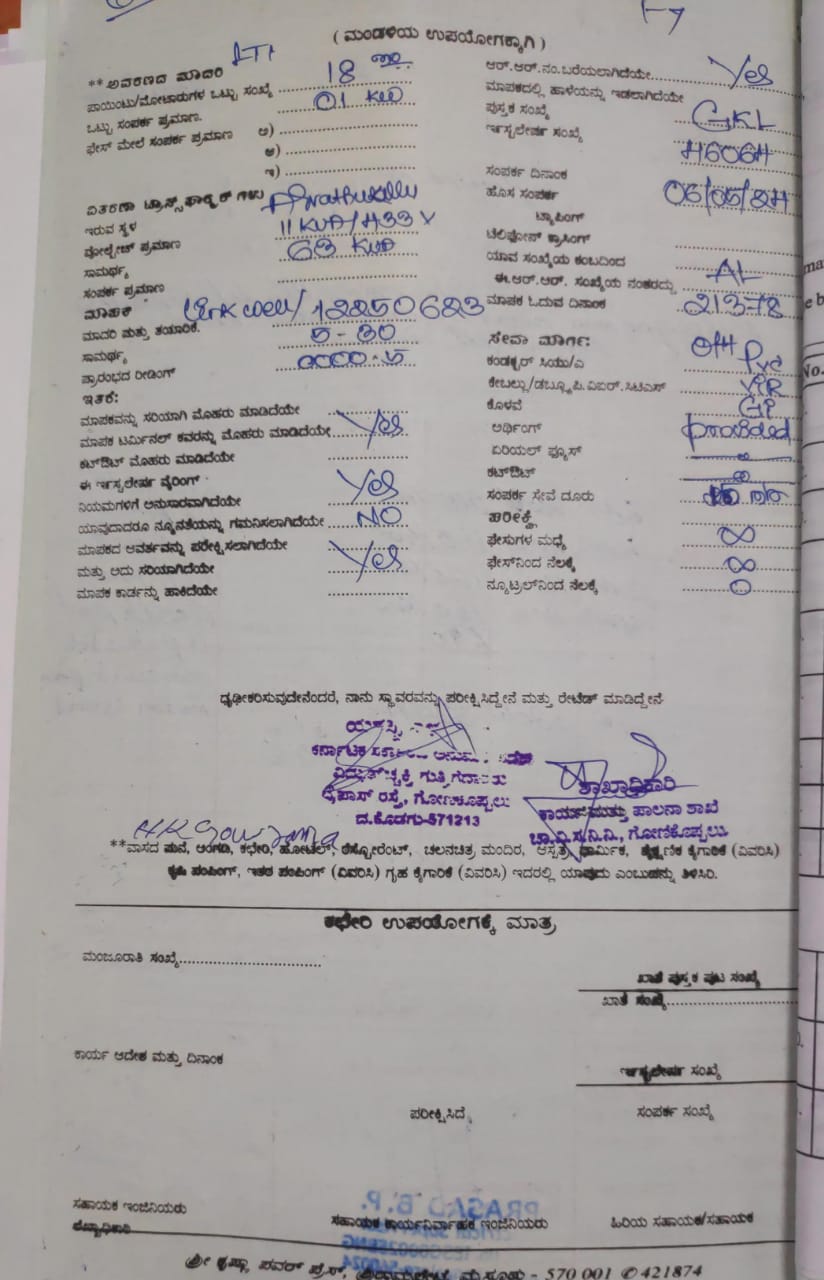 ( ಮಂಡಳಿಯ ಉಪಯೋಗಕ್ಕಾಗಿ )
**ಆವರಣದ ಮಾದರಿ
ಪಾಯಿಂಟು/ಮೋಟಾರುಗಳ ಒಟ್ಟು ಸಂಖ್ಯೆ 18
ಒಟ್ಟು ಸಂಪರ್ಕ ಪ್ರಮಾಣ. 01 KW
ಫೇಸ್ ಮೇಲೆ ಸಂಪರ್ಕ ಪ್ರಮಾಣ ಅ)
ಆ)
ಇ)
ವಿತರಣಾ ಟ್ರಾನ್ಸ್‌ಫಾರ್ಮರ್‌ಗಳು
ಇರುವ ಸ್ಥಳ
ವೋಲ್ಟೇಜ್ ಪ್ರಮಾಣ
ಸಾಮರ್ಥ್ಯ 63 KVA
ಸಂಪರ್ಕ ಪ್ರಮಾಣ
ಮಾಪಕ
ಮಾದರಿ ಮತ್ತು ತಯಾರಿಕೆ.
ಸಾಮರ್ಥ್ಯ 5-30
ಪ್ರಾರಂಭದ ರೀಡಿಂಗ್ 0000.5
ಇತರೆ:
ಮಾಪಕವನ್ನು ಸರಿಯಾಗಿ ಮೊಹರು ಮಾಡಿದೆಯೇ
ಮಾಪಕ ಟರ್ಮಿನಲ್ ಕವರನ್ನು ಮೊಹರು ಮಾಡಿದೆಯೇ Yes
ಕಟ್‌ಔಟ್ ಮೊಹರು ಮಾಡಿದೆಯೇ
ಈ ಇನ್ಸ್ಟಲೇಷನ್ ವೈರಿಂಗ್
ನಿಯಮಗಳಿಗೆ ಅನುಸಾರವಾಗಿದೆಯೇ Yes
ಯಾವುದಾದರೂ ನ್ಯೂನತೆಯನ್ನು ಗಮನಿಸಲಾಗಿದೆಯೇ NO
ಮಾಪಕದ ಆವರ್ತವನ್ನು ಪರೀಕ್ಷಿಸಲಾಗಿದೆಯೇ
ಮತ್ತು ಅದು ಸರಿಯಾಗಿದೆಯೇ Yes
ಮಾಪಕ ಕಾರ್ಡನ್ನು ಹಾಕಿದೆಯೇ
ಆರ್.ಆರ್.ನಂ.ಬರೆಯಲಾಗಿದೆಯೇ Yes
ಮಾಪಕದಲ್ಲಿ ಹಾಳೆಯನ್ನು ಇಡಲಾಗಿದೆಯೇ
ಪುಸ್ತಕ ಸಂಖ್ಯೆ GKL
ಇನ್ಸ್ಟಲೇಷನ್ ಸಂಖ್ಯೆ
ಸಂಪರ್ಕ ದಿನಾಂಕ
ಹೊಸ ಸಂಪರ್ಕ
ಟ್ಯಾಪಿಂಗ್
ಟೆಲಿಫೋನ್ ಕ್ರಾಸಿಂಗ್
ಯಾವ ಸಂಖ್ಯೆಯ ಕಂಬದಿಂದ
ಈ.ಆರ್.ಆರ್. ಸಂಖ್ಯೆಯ ನಂತರದ್ದು AL
ಮಾಪಕ ಓದುವ ದಿನಾಂಕ 21378
ಸೇವಾ ಮಾರ್ಗ: OH
ಕಂಡಕ್ಟರ್ ಸಿಯು/ಎ Pvc
ಕೇಬಲ್ಲು/ಡಬ್ಲ್ಯೂ.ಪಿ.ವಿಐರ್.ಸಿಟಿಎಸ್ VIR
ಕೊಳವೆ GP
ಅರ್ಥಿಂಗ್ provided
ಏರಿಯಲ್ ಫ್ಯೂಸ್
ಕಟ್‌ಔಟ್
ಸಂಪರ್ಕ ಸೇವೆ ದೂರು
ಪರೀಕ್ಷೆ
ಫೇಸುಗಳ ಮಧ್ಯೆ ∞
ಫೇಸ್‌ನಿಂದ ನೆಲಕ್ಕೆ ∞
ನ್ಯೂಟ್ರಲ್‌ನಿಂದ ನೆಲಕ್ಕೆ 0
ಧೃಢೀಕರಿಸುವುದೇನೆಂದರೆ, ನಾನು ಸ್ಥಾವರವನ್ನು ಪರೀಕ್ಷಿಸಿದ್ದೇನೆ ಮತ್ತು ರೇಟೆಡ್ ಮಾಡಿದ್ದೇನೆ
ವಿದ್ಯುಚ್ಛಕ್ತಿ ಗುತ್ತಿಗೆದಾರರು
ಬೈಪಾಸ್ ರಸ್ತೆ, ಗೋಣಿಕೊಪ್ಪಲು
ದ.ಕೊಡಗು-571213
ಶಾಖಾಧಿಕಾರಿ
ಕಾರ್ಯ ಮತ್ತು ಪಾಲನಾ ಶಾಖೆ
ಚಾ.ವಿ.ಸ.ನಿ.ನಿ., ಗೋಣಿಕೊಪ್ಪಲು.
**ವಾಸದ ಮನೆ, ಅಂಗಡಿ, ಕಛೇರಿ, ಹೋಟೆಲ್, ರೆಸ್ಟೋರೆಂಟ್, ಚಲನಚಿತ್ರ ಮಂದಿರ, ಆಸ್ಪತ್ರೆ, ಧಾರ್ಮಿಕ, ಶೈಕ್ಷಣಿಕ ಕೈಗಾರಿಕೆ (ವಿವರಿಸಿ)
ಕೃಷಿ ಪಂಪಿಂಗ್, ಇತರ ಪಂಪಿಂಗ್ (ವಿವರಿಸಿ) ಗೃಹ ಕೈಗಾರಿಕೆ (ವಿವರಿಸಿ) ಇದರಲ್ಲಿ ಯಾವುದು ಎಂಬುದನ್ನು ತಿಳಿಸಿರಿ.
ಕಛೇರಿ ಉಪಯೋಗಕ್ಕೆ ಮಾತ್ರ
ಮಂಜೂರಾತಿ ಸಂಖ್ಯೆ
ಖಾತೆ ಪುಸ್ತಕ ಪುಟ ಸಂಖ್ಯೆ
ಖಾತೆ ಸಂಖ್ಯೆ
ಕಾರ್ಯ ಆದೇಶ ಮತ್ತು ದಿನಾಂಕ
ಇನ್ಸ್ಟಲೇಷನ್ ಸಂಖ್ಯೆ
ಪರೀಕ್ಷಿಸಿದೆ
ಸಂಪರ್ಕ ಸಂಖ್ಯೆ
ಸಹಾಯಕ ಇಂಜಿನಿಯರು
ಸಹಾಯಕ ಕಾರ್ಯನಿರ್ವಾಹಕ ಇಂಜಿನಿಯರು
ಹಿರಿಯ ಸಹಾಯಕ/ಸಹಾಯಕ
- 570 001 ✆ 421874